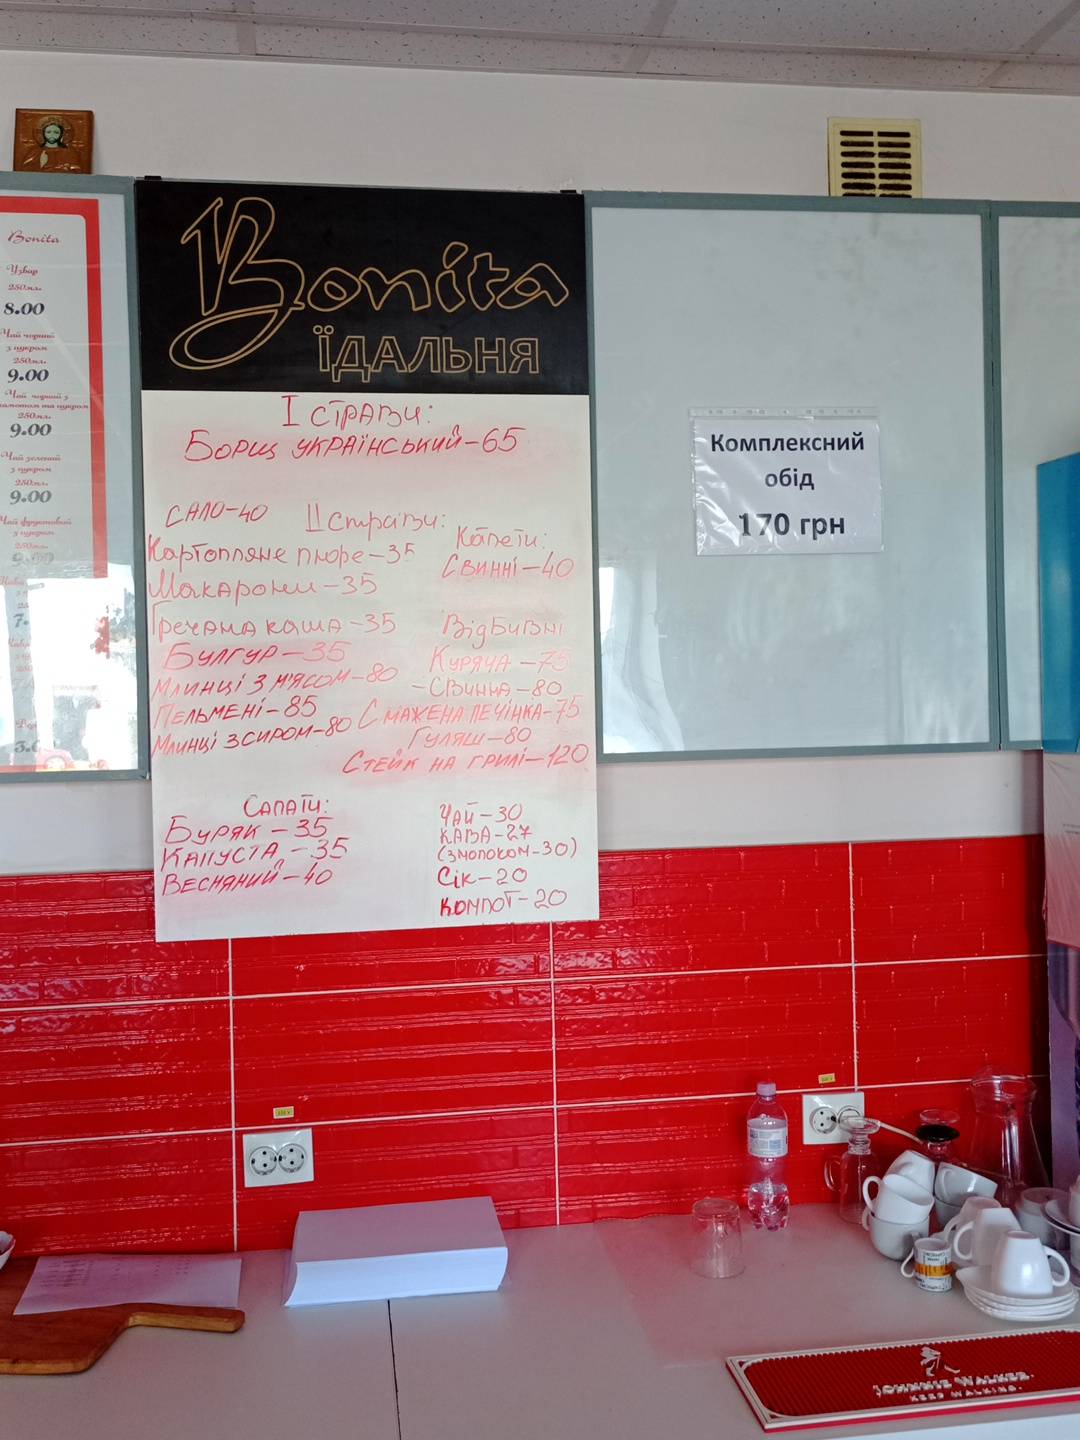 Bonita
Узвар
250мл.
8.00
Чай чорний
з цукром
250мл.
9.00
Чай чорний з
та цукром
250мл.
9.00
Чай зелений
з цукром
250мл.
9.00
Чай фруктовий
з цукром
250мл.
Bonita
ЇДАЛЬНЯ
І СТРАВИ:
БОРЩ УКРАЇНСЬКИЙ-65
САЛО-40
ІІ страви:
Картопляне пюре-35
Макарони-35
Гречана каша-35
БУЛГУР-35
МЛИНЦІ З М'ЯСОМ-80
ПЕЛЬМЕНІ-85
МЛИНЦІ З СИРОМ-80
Капети:
Свинні-40
Відбивні
КУРЯЧА-75
-СВИННА-80
СМАЖЕНА ПЕЧІНКА-75
ГУЛЯШ-80
СТЕЙК НА ГРИЛІ-120
САЛАТИ:
БУРЯК-35
КАПУСТА-35
ВЕСНЯНИЙ-40
ЧАЙ-30
КАВА-27
(З МОЛОКОМ-30)
Сік-20
КОМПОТ-20
Комплексний
обід
170 грн
JOHNNIE WALKER.
KEEP WALKING.